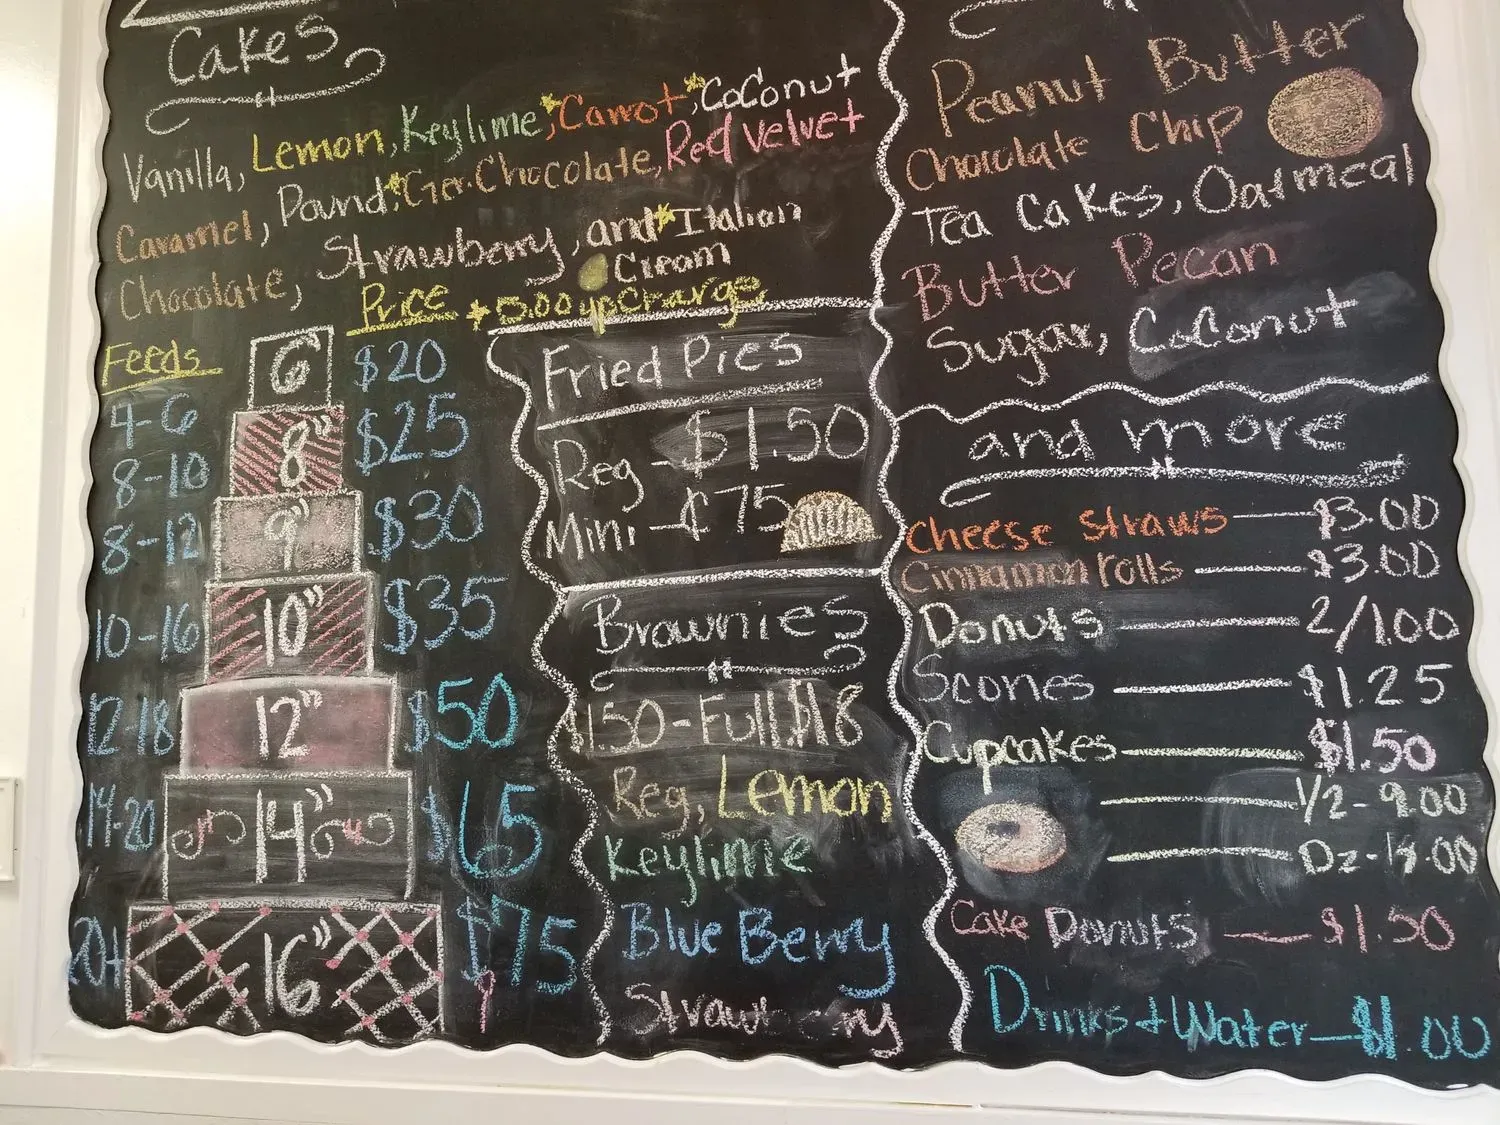 Cakes
Vanilla, Lemon, Keylime*, Carrot*, Coconut
Caramel, Pound*, Ger. Chocolate, Red Velvet
Chocolate, Strawberry, and *Italian
Cream
Price *5.00 upcharge
Feeds
6" $20
4-6
8" $25
8-10
9" $30
8-12
10" $35
10-16
12" $50
12-18
14" $65
14-20
16" $75
20+
Fried Pies
Reg - $1.50
Mini - ¢75
Brownies
$1.50 - Full $18
Reg, Lemon
Keylime
Blue Berry
Strawberry
Peanut Butter
Chocolate Chip
Tea Cakes, Oatmeal
Butter Pecan
Sugar, Coconut
and more
Cheese straws $3.00
Cinnamon rolls $3.00
Donuts 2/1.00
Scones $1.25
Cupcakes $1.50
1/2 - 9.00
Dz - 18.00
Cake Donuts $1.50
Drinks + Water $1.00